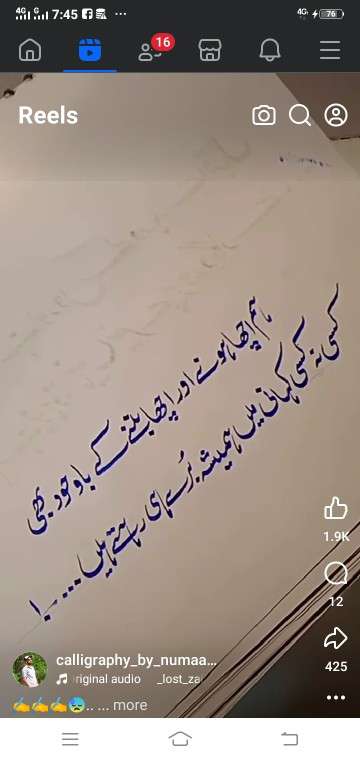 7:45
76
16
Reels
ہم اچھا ہونے اور اچھا بننے کے باوجود بھی
کسی نہ کسی کہانی میں ہمیشہ بُرے ہی رہتے ہیں....!
1.9K
12
425
calligraphy_by_numaa...
riginal audio _lost_za
✍️✍️✍️😥.. ... more